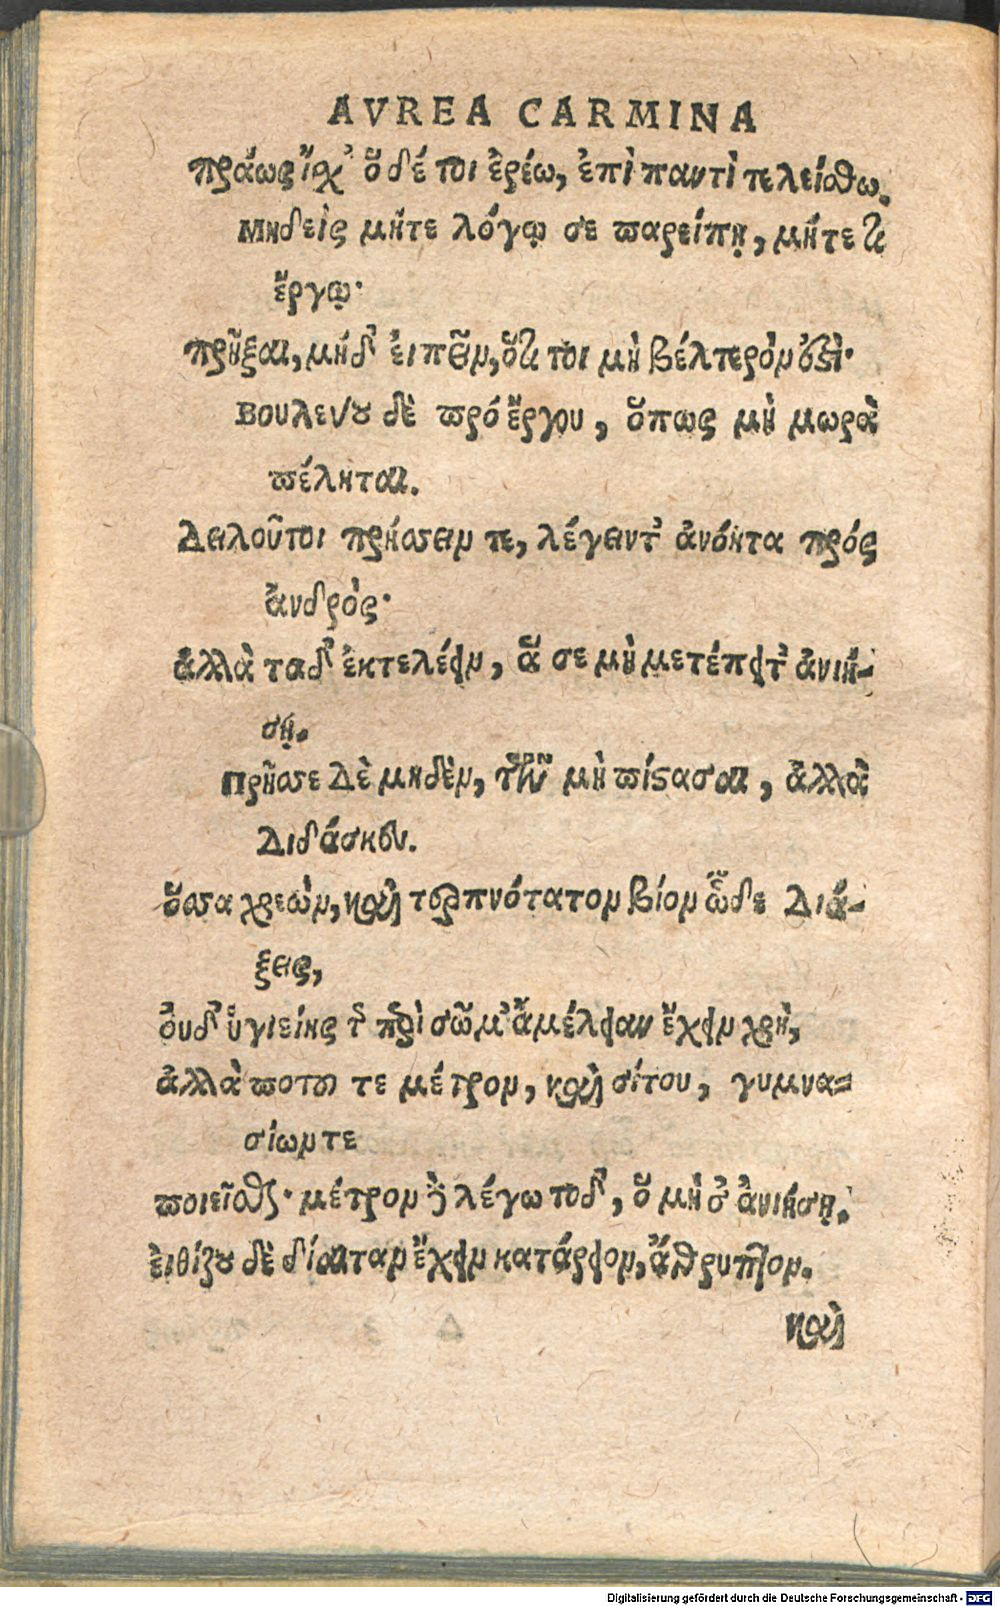 AVREA CARMINA
πράως ἴσχ' ὃ δέ τοι ἐρέω, ἐπὶ παντὶ τελείσθω.
Μηδεὶς μήτε λόγῳ σε παρείπῃ, μήτε τι
ἔργῳ·
πρῆξαι, μήδ' ἐιπεῖν, ὅτι τοι μὴ βέλτερόν ὀξὶ·
Βουλεύου δὲ πρὸ ἔργου, ὅπως μὴ μωρὰ
πέληται.
Δειλοῦ τοι πρήσσειν τε, λέγειν τ' ἀνόητα πρός
ἀνδρὸς·
ἀλλὰ ταδ' ἐκτελέειν, ἅ σε μὴ μετέπειτ' ἀνιή-
σῃ.
Πρῆσσε Δὲ μηδὲν, τῶν μὴ πίστασαι, ἀλλὰ
Διδάσκου.
ὅσσα χρεὼν, καὶ τερπνότατον βίον ὧδε Διά-
ξεις,
ὀυδ' ὑγιείης τ περὶ σῶμ' ἀμέλειαν ἔχειν χρὴ,
ἀλλὰ ποτοῦ τε μέτρον, καὶ σίτου, γυμνα=
σίων τε
ποιεῖσθαι· μέτρον δὲ λέγω τοδ', ὃ μὴ σ' ἀνιήσῃ.
ἐιθίζου δὲ δίαιταν ἔχειν κατάρειον, ἄθρυπτον.
καὶ
Digitalisierung gefördert durch die Deutsche Forschungsgemeinschaft - DFG